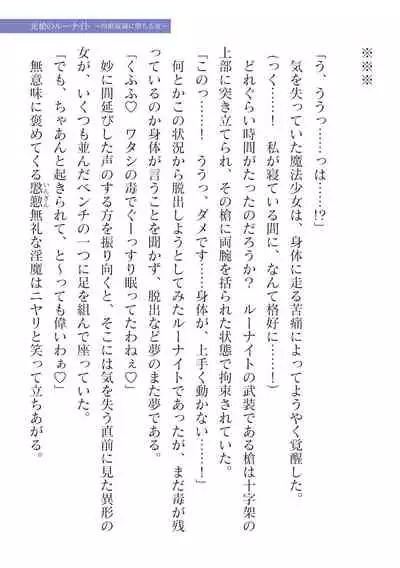 光槍のルーナイト ～四肢寂滅に堕ちる夜～
※※※
「う、ううっ……っは……!?」
気を失っていた魔法少女は、身体に走る苦痛によってようやく覚醒した。
（っく……！　私が寝ている間に、なんて格好に……！）
どれぐらい時間がたったのだろうか？　ルーナイトの武装である槍は十字架の
上部に突き立てられ、その槍に両腕を括られた状態で拘束されていた。
「このっ……！　ううっ、ダメです……身体が、上手く動かない……！」
何とかこの状況から脱出しようとしてみたルーナイトであったが、まだ毒が残
っているのか身体が言うことを聞かず、脱出など夢のまた夢である。
「くふふ♡　ワタシの毒でぐーっすり眠ってたわねぇ♡」
妙に間延びした声のする方を振り向くと、そこには気を失う直前に見た異形の
女が、いくつも並んだベンチの一つに足を組んで座っていた。
「でも、ちゃあんと起きられて、と～っても偉いわぁ♡」
無意味に褒めてくる慇懃（いんぎん）無礼な淫魔はニヤリと笑って立ちあがる。